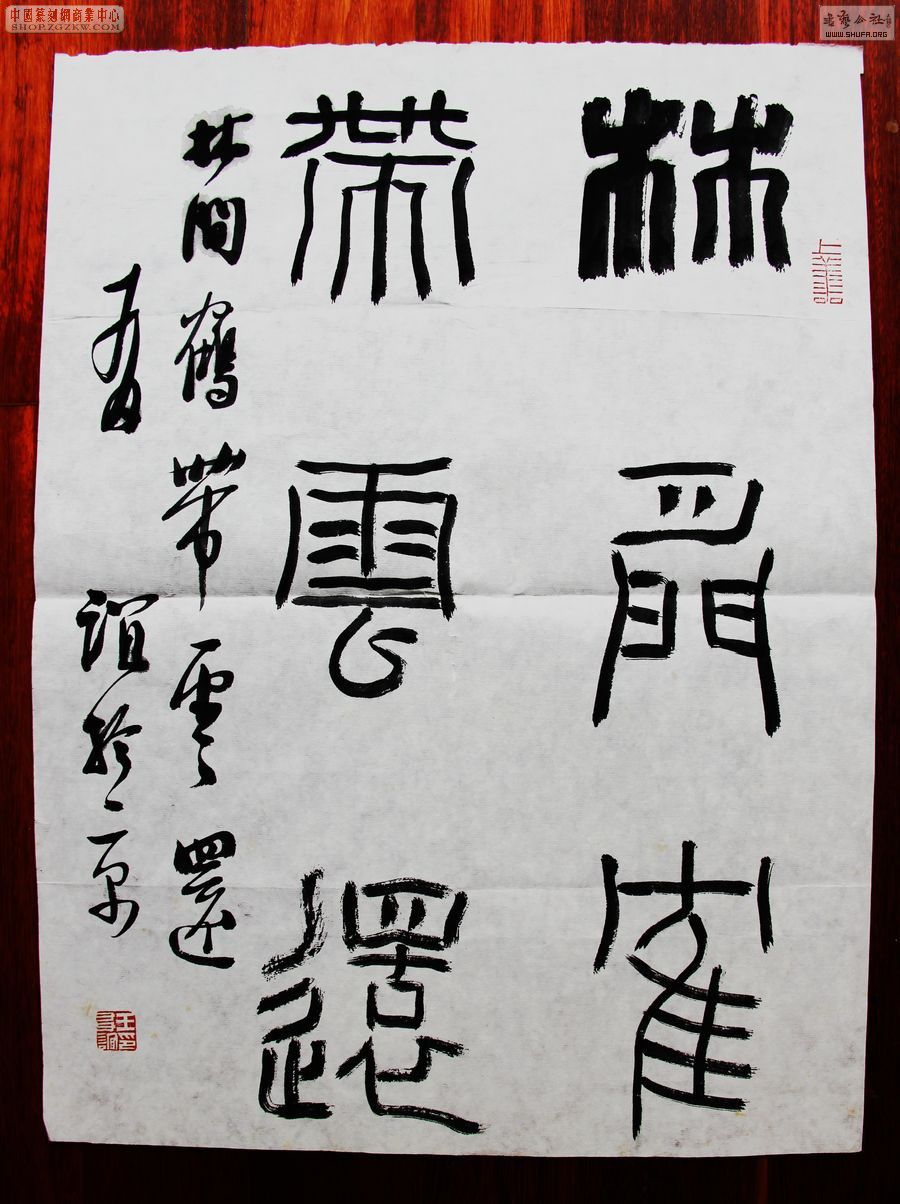 中國篆刻網商業中心
SHOP.ZGZKW.COM
書藝公社
WWW.SHUFA.ORG
林閒隺
帶雲還
林間鶴帶雲還
友誼於京
王友誼印